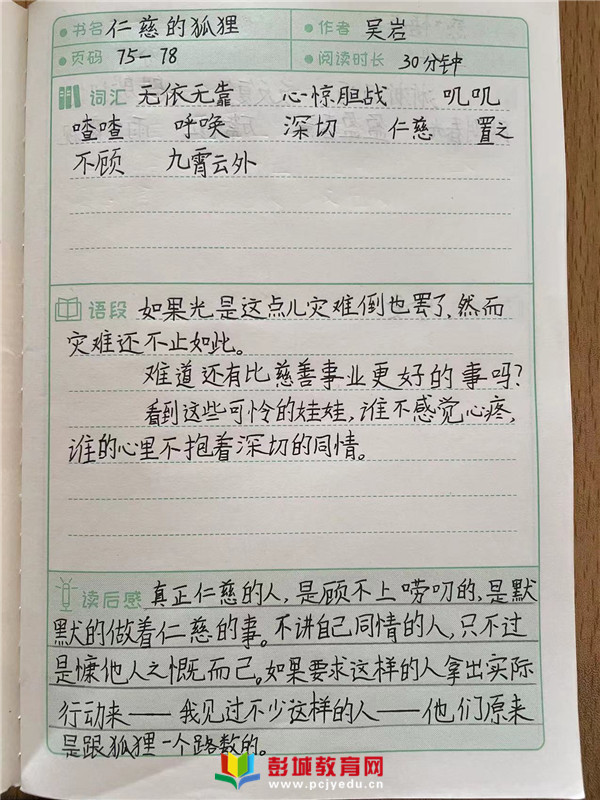 书名 仁慈的狐狸 作者 吴岩
页码 75-78 阅读时长 30分钟
词汇 无依无靠 心惊胆战 叽叽
喳喳 呼唤 深切 仁慈 置之
不顾 九霄云外
语段 如果光是这点儿灾难倒也罢了,然而
灾难还不止如此。
难道还有比慈善事业更好的事吗?
看到这些可怜的娃娃,谁不感觉心疼,
谁的心里不抱着深切的同情。
读后感 真正仁慈的人,是顾不上唠叨的,是默
默的做着仁慈的事。不讲自己同情的人,只不过
是慷他人之慨而已。如果要求这样的人拿出实际
行动来——我见过不少这样的人——他们原来
是跟狐狸一个路数的。
彭城教育网
www.pcjyedu.cn